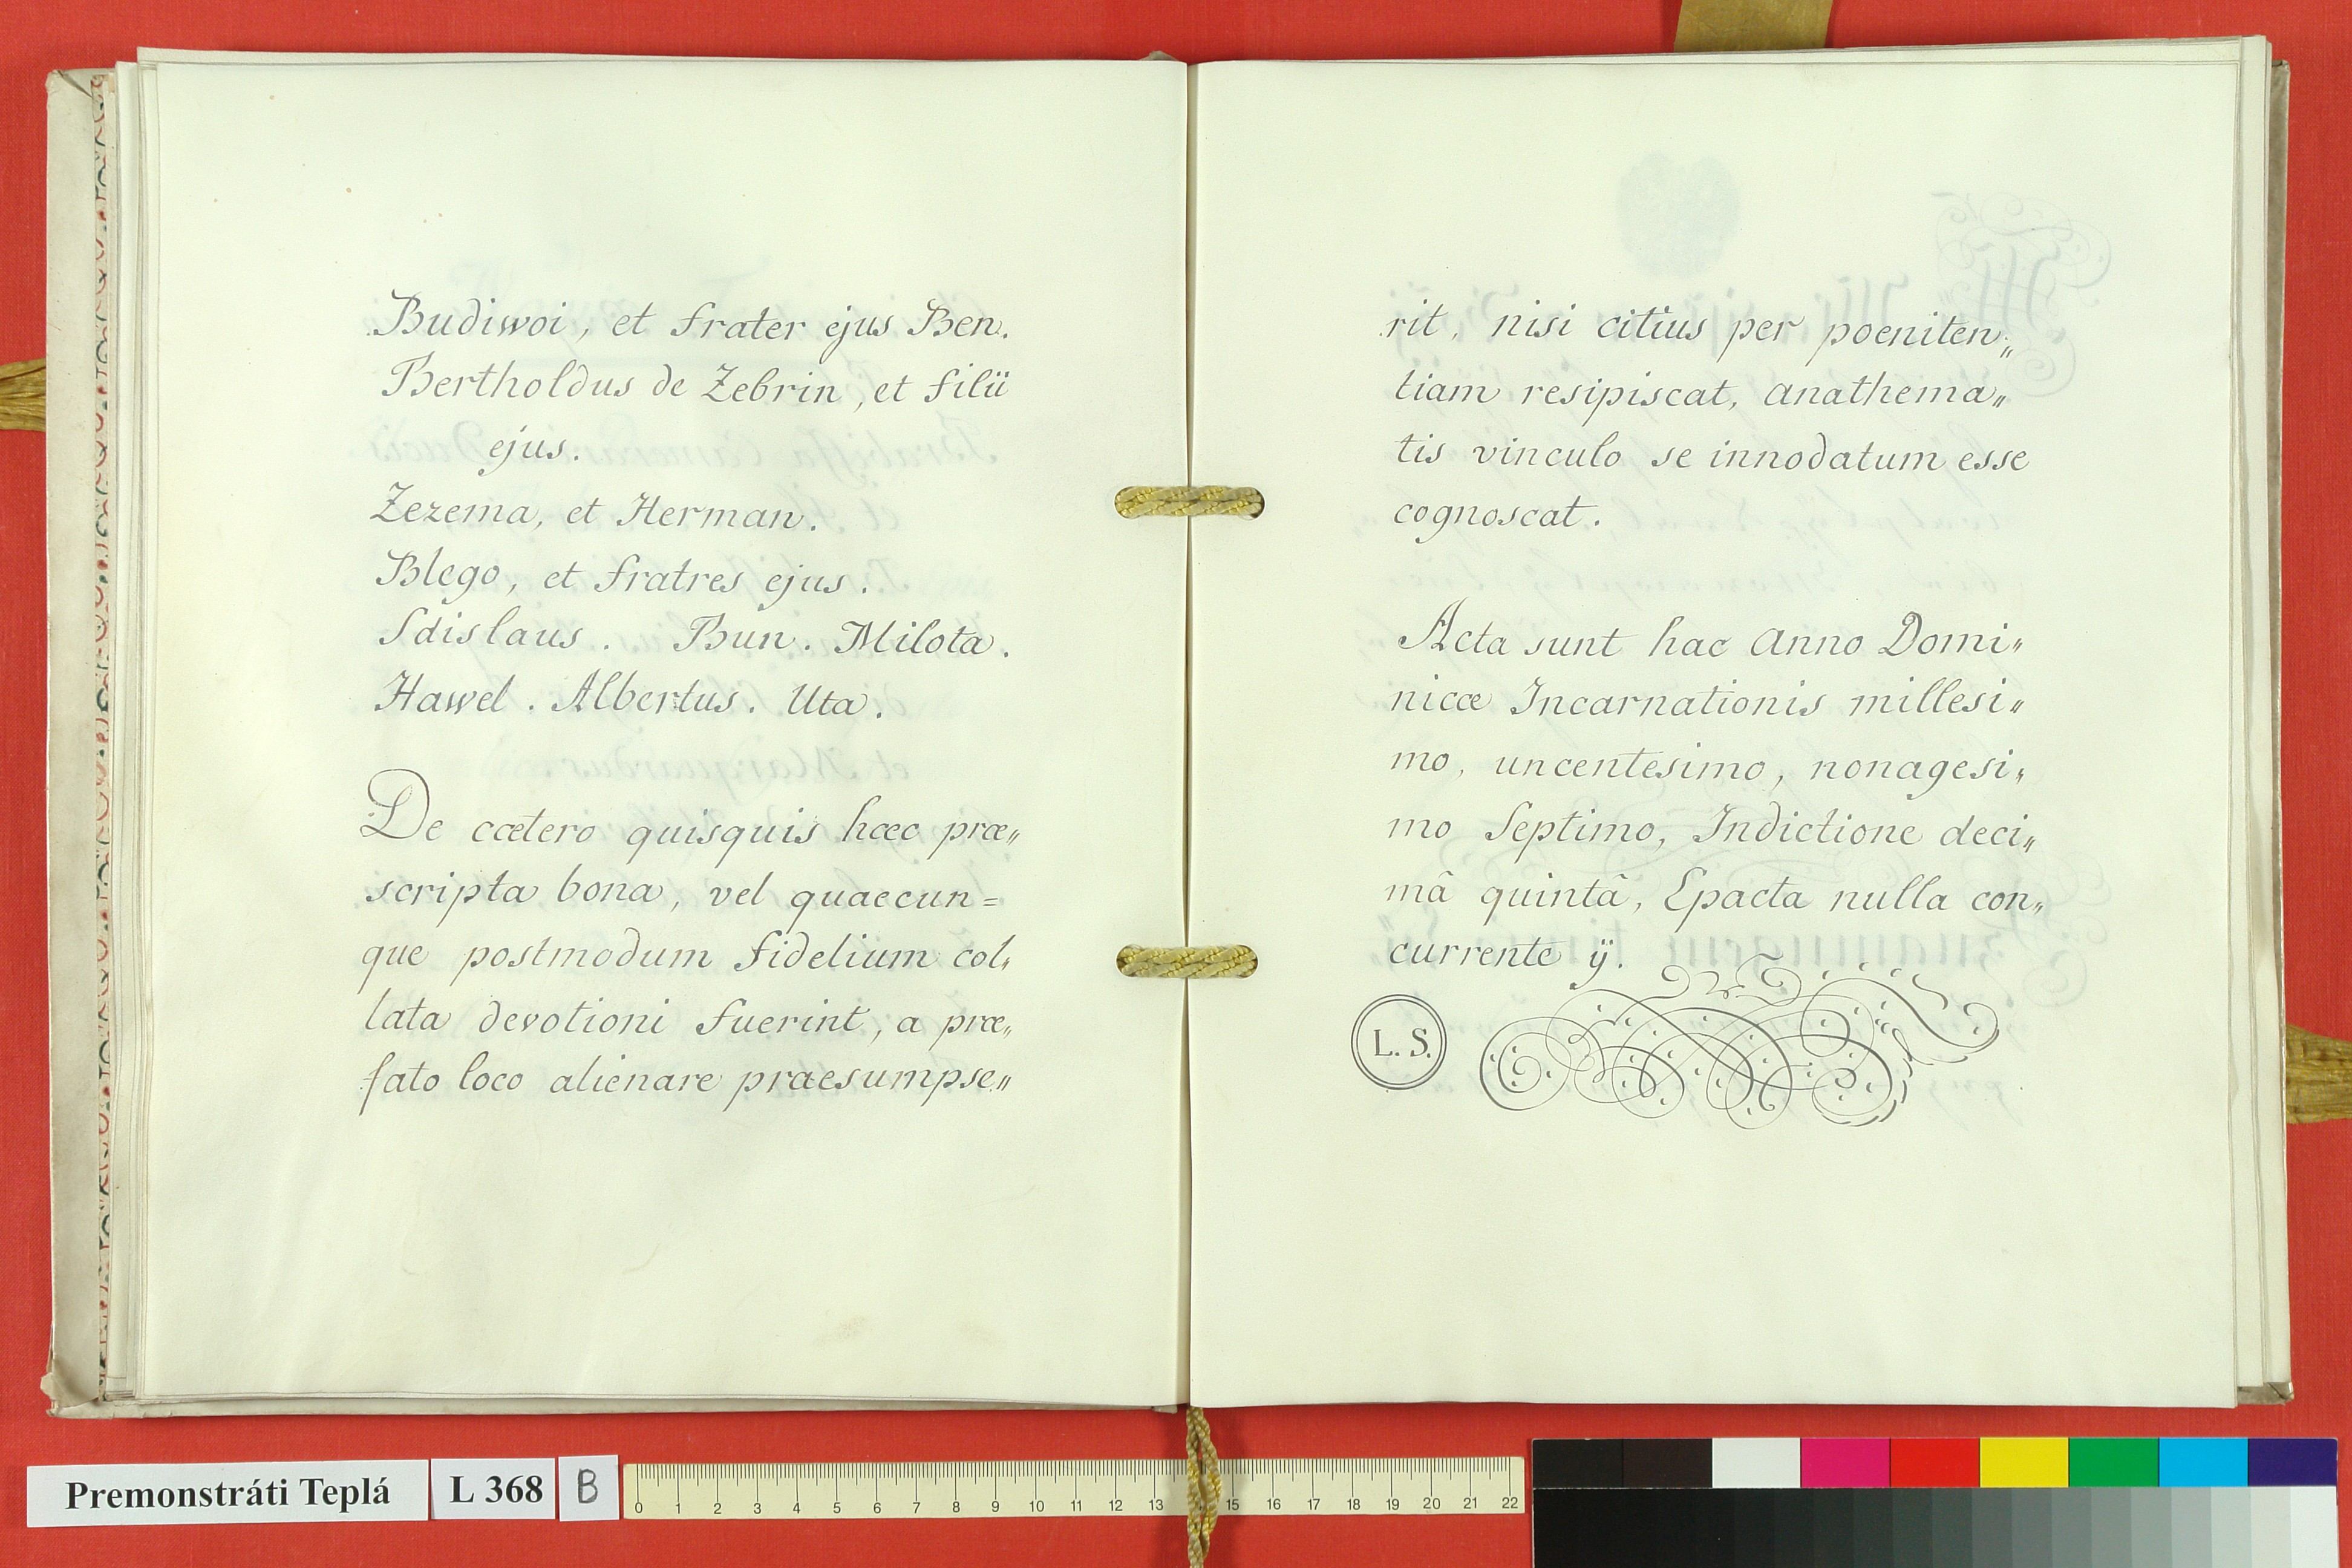 Budiwoi, et frater ejus Ben.
Bertholdus de Zebrin, et filii
ejus.
Zezema, et Herman.
Blego, et fratres ejus.
Sdislaus. Bun. Milota.
Hawel. Albertus. Uta.
De cætero quisquis hæc præ„
scripta bona, vel quaecun=
que postmodum fidelium col„
lata devotioni fuerint, a præ„
fato loco alienare praesumpse„
rit, nisi citius per poeniten„
tiam resipiscat, anathema„
tis vinculo se innodatum esse
cognoscat.
Acta sunt hac anno Domi„
nicæ Incarnationis millesi„
mo, uncentesimo, nonagesi„
mo Septimo, Indictione deci„
mâ quintâ, Epacta nulla con„
currente ij.
L. S.
Premonstráti Teplá L 368 B
0 1 2 3 4 5 6 7 8 9 10 11 12 13 15 16 17 18 19 20 21 22